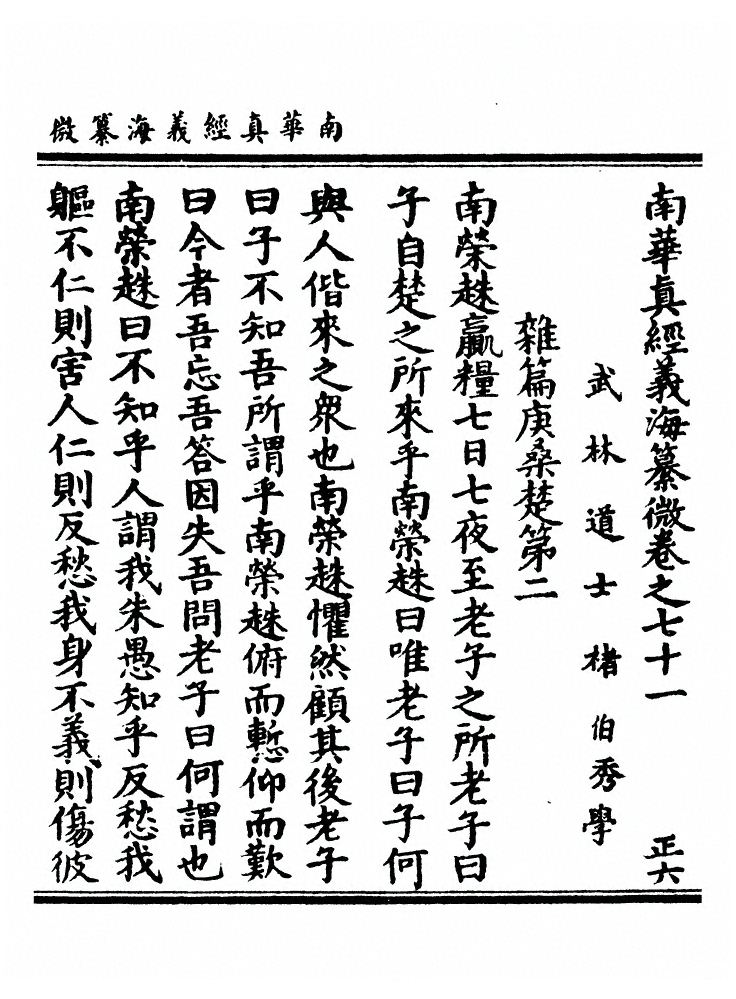 南華真經義海纂微
南華真經義海纂微卷之七十一　正六
武林道士褚伯秀學
雜篇庚桑楚第二
南榮趎贏糧七日七夜至老子之所老子曰
子自楚之所來乎南榮趎曰唯老子曰子何
與人偕來之衆也南榮趎懼然顧其後老子
曰子不知吾所謂乎南榮趎俯而慙仰而歎
曰今者吾忘吾答因失吾問老子曰何謂也
南榮趎曰不知乎人謂我朱愚知乎反愁我
軀不仁則害人仁則反愁我身不義則傷彼